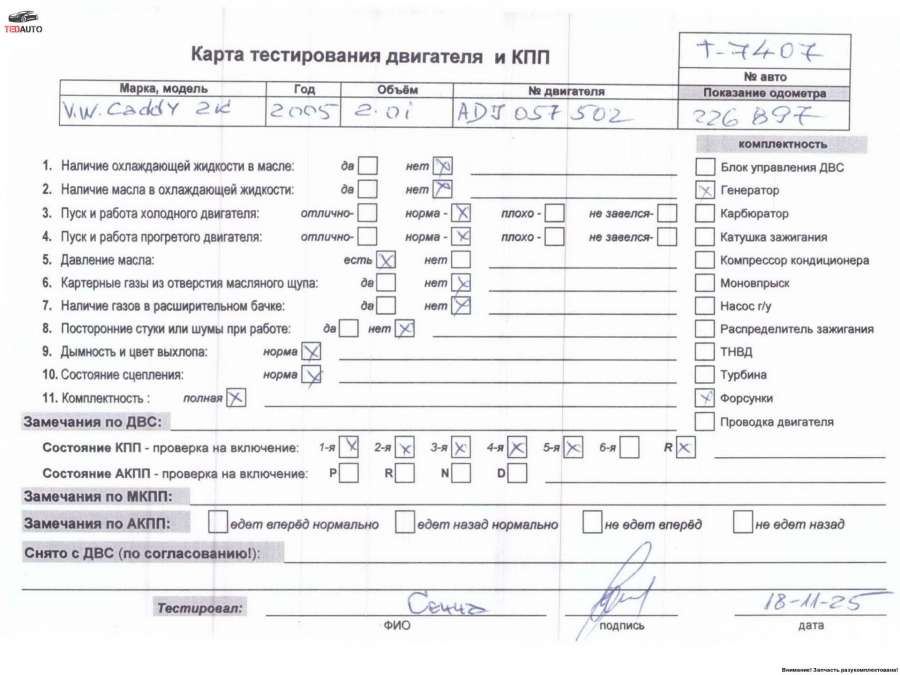 TEDAUTO
Карта тестирования двигателя и КПП
T-7407
№ авто
Марка, модель Год Объём № двигателя Показание одометра
V.W. Caddy 2K 2005 2.0i ADJ 057 502 226 897
комплектность
1. Наличие охлаждающей жидкости в масле: да нет X Блок управления ДВС
2. Наличие масла в охлаждающей жидкости: да нет X X Генератор
3. Пуск и работа холодного двигателя: отлично- норма - X плохо - не завелся- Карбюратор
4. Пуск и работа прогретого двигателя: отлично- норма - X плохо - не завелся- Катушка зажигания
5 Давление масла: есть X нет Компрессор кондиционера
6. Картерные газы из отверстия масляного щупа: да нет X Моновпрыск
7. Наличие газов в расширительном бачке: да нет X Насос г/у
8. Посторонние стуки или шумы при работе: да нет X Распределитель зажигания
9. Дымность и цвет выхлопа: норма X ТНВД
10. Состояние сцепления: норма X Турбина
11. Комплектность : полная X X Форсунки
Замечания по ДВС: Проводка двигателя
Состояние КПП - проверка на включение: 1-я X 2-я X 3-я X 4-я X 5-я X 6-я R X
Состояние АКПП - проверка на включение: P R N D
Замечания по МКПП:
Замечания по АКПП: едет вперёд нормально едет назад нормально не едет вперёд не едет назад
Снято с ДВС (по согласованию!):
Тестировал: 18-11-25
ФИО подпись дата
Внимание! Запчасть разукомплектована!